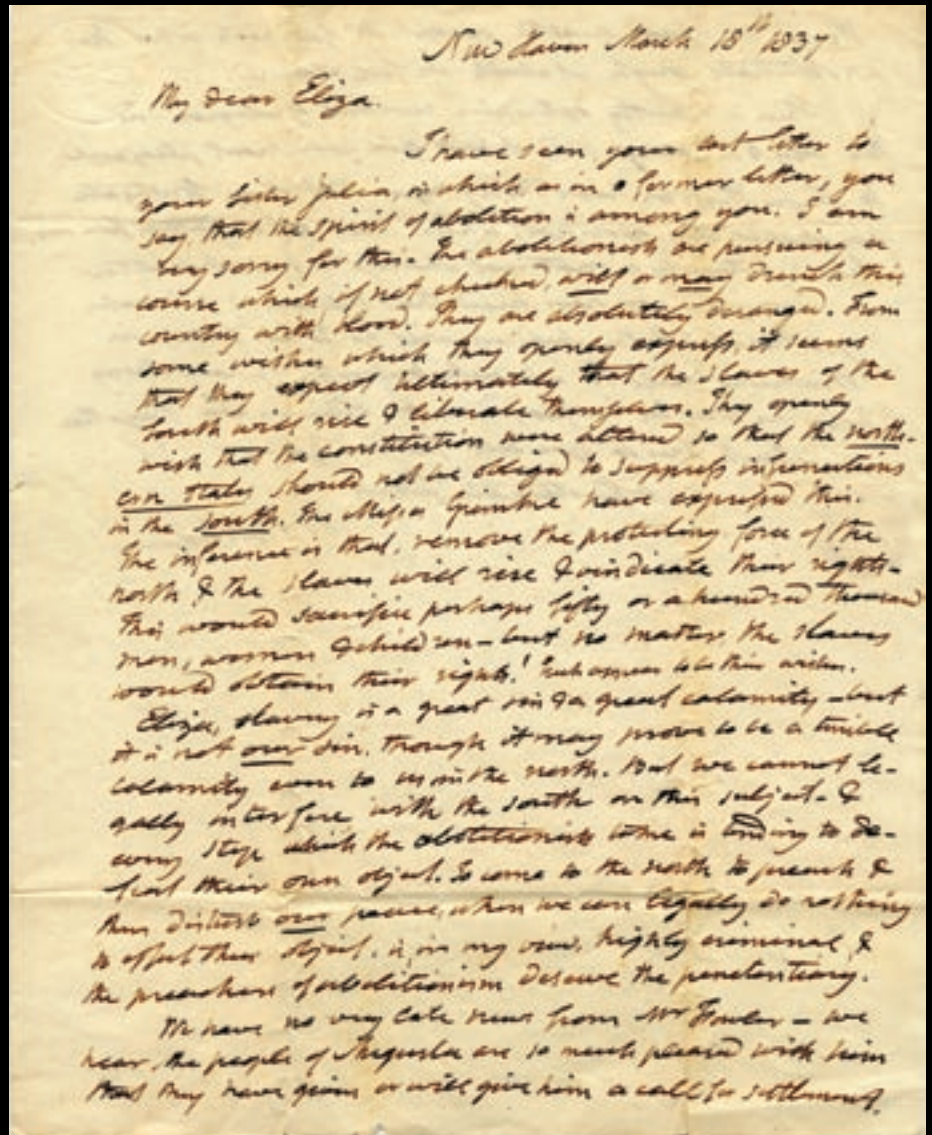 New Haven March 18th 1837
My dear Eliza.
I have seen your last letter to
your Sister Julia, in which as in a former letter, you
say that the spirit of abolition is among you. I am
very sorry for this. The abolitionists are pursuing a
course which if not checked, will or may drench this
country with blood. They are absolutely deranged. From
some wishes which they openly express, it seems
that they expect ultimately that the slaves of the
South will rise & liberate themselves. They openly
wish that the constitution were altered so that the north-
ern States should not be obliged to suppress insurrections
in the South. The Misses Grimke have expressed this.
The inference is that, remove the protecting force of the
north & the slaves will rise & vindicate their rights-
this would sacrifice perhaps fifty or a hundred thousand
men, women & children - but no matter, the slaves
would obtain their rights! Such appear to be their wishes.
Eliza, slavery is a great sin & a great calamity - but
it is not our sin, though it may prove to be a terrible
calamity even to us in the north. But we cannot le-
gally interfere with the South on this subject - &
every step which the abolitionists take is tending to de-
feat their own object. To come to the north to preach &
thus disturb our peace, when we can legally do nothing
to effect their object, is, in my view, highly criminal &
the preachers of abolitionism deserve the penitentiary.
We have no very late news from Mr Fowler - we
hear, the people of Augusta are so much pleased with him
that they have given or will give him a call for settlement.